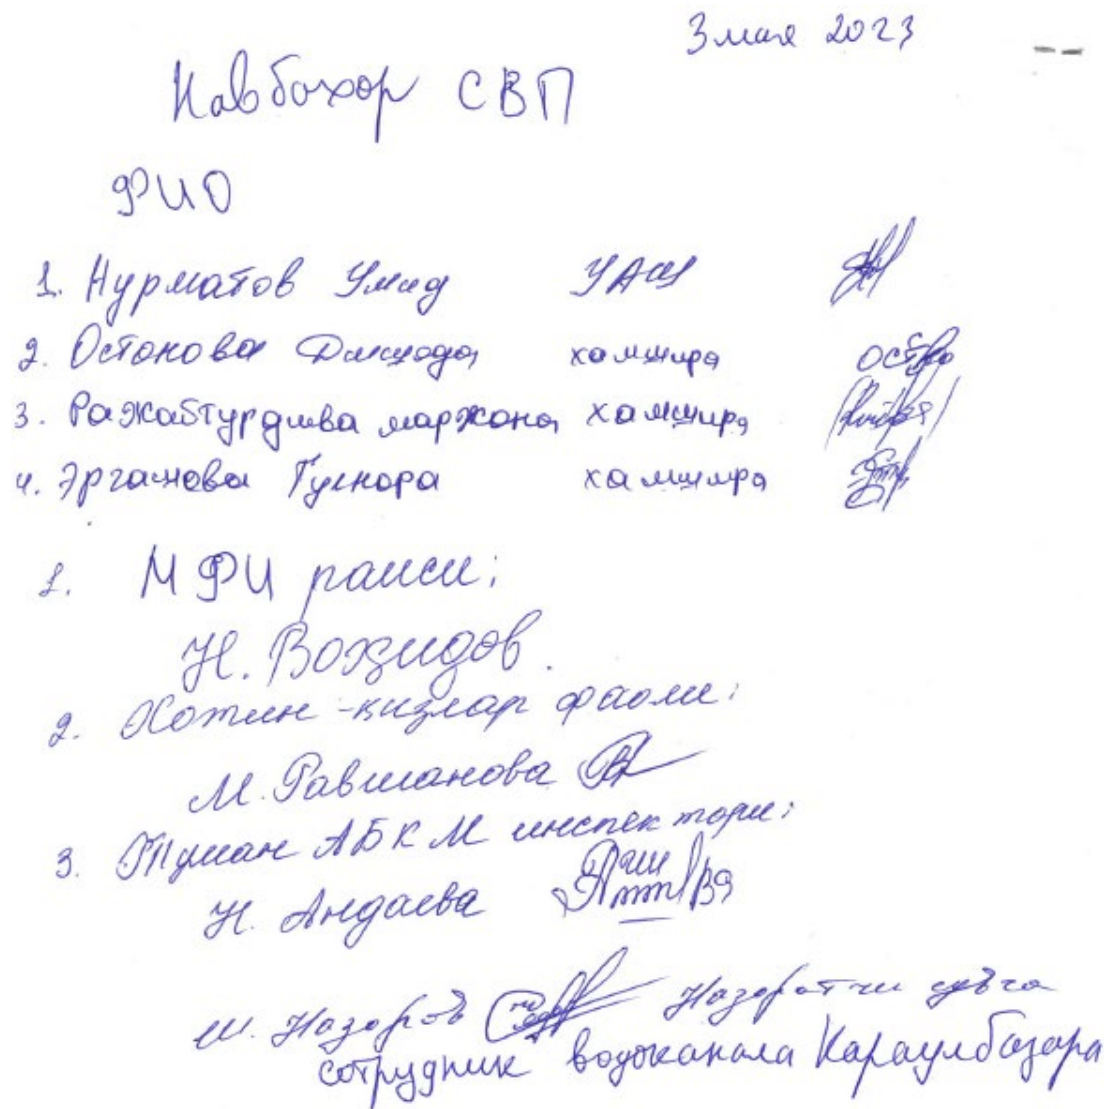 3 мая 2023
Навбахор СВП
ФИО
1. Нурматов Умид УАШ
2. Остонова Дилшода хамшира
3. Ражабтурдиева маржона хамшира
4. Эргашева Гулнора хамшира
1. МФИ раиси:
Н. Вохидов.
2. Хотин-кизлар фаоли:
М. Равшанова
3. Туман АБКМ инспектори:
Н. Андаева
Ш. Назаров Назоратчи
сотрудник водоканала Караулбазара